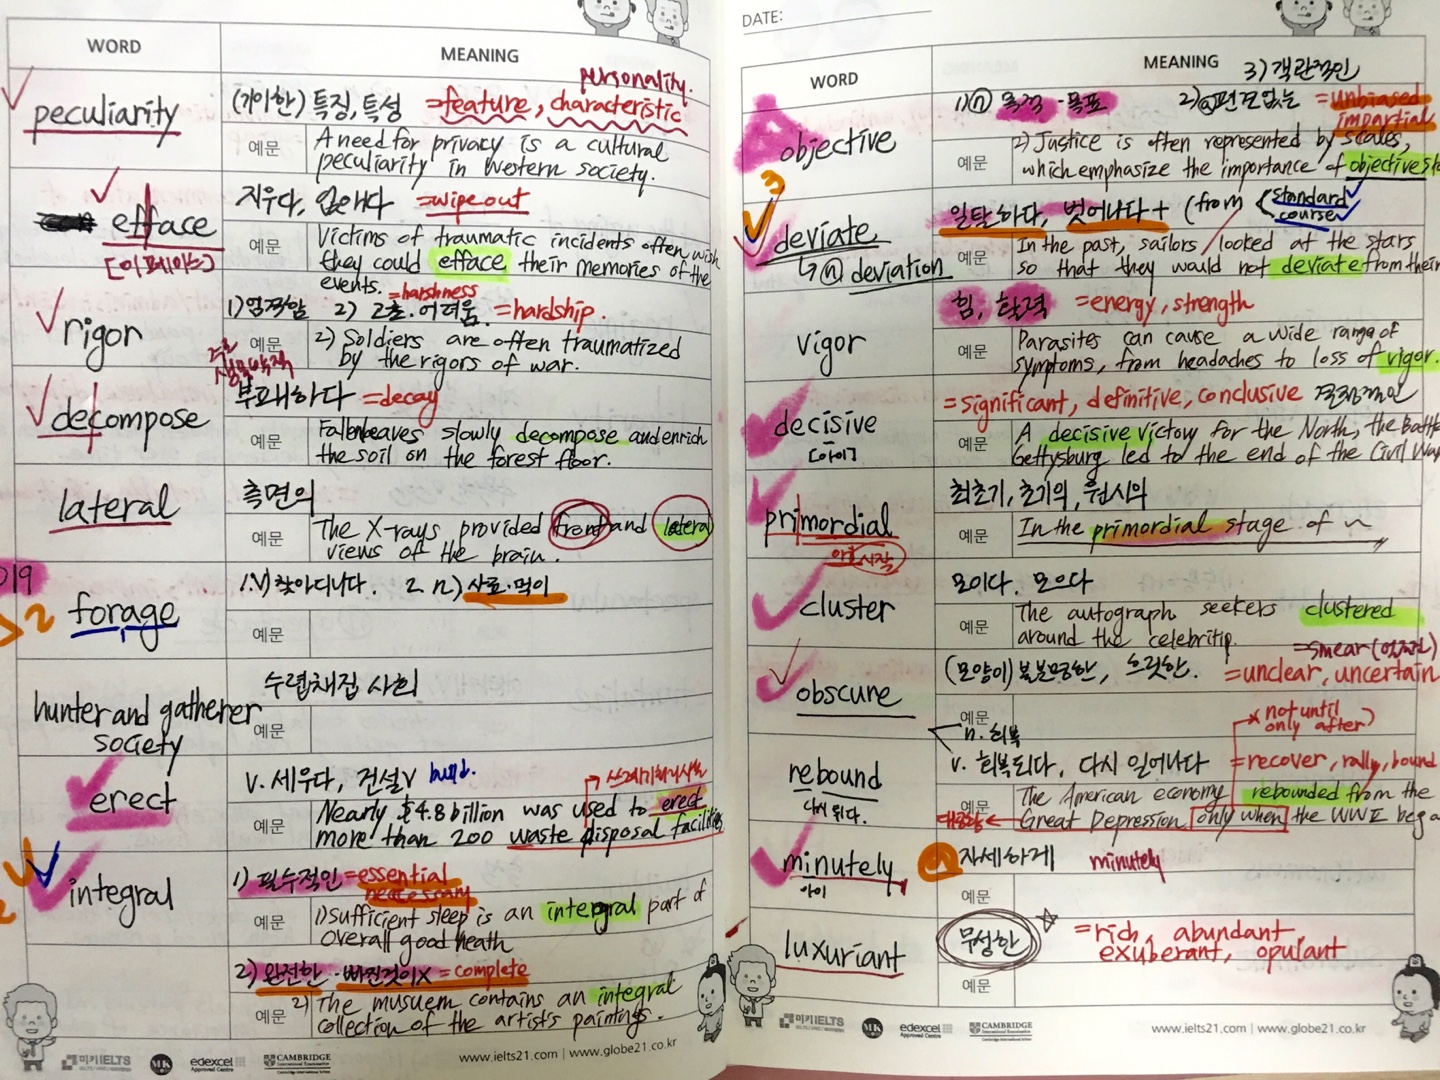 WORD MEANING
personality.
peculiarity (기이한) 특징, 특성 =feature, characteristic
예문 A need for privacy is a cultural
peculiarity in western society.
efface 지우다, 없애다 =wipe out
[이페이스]
예문 Victims of traumatic incidents often wish
they could efface their memories of the
events.
=harshness
rigor 1) 엄격함 2) 고초·어려움 =hardship.
예문 2) Soldiers are often traumatized
by the rigors of war.
주로
decompose 부패하다 =decay
예문 Fallen leaves slowly decompose and enrich
the soil on the forest floor.
lateral 측면의
예문 The X-rays provided front and lateral
views of the brain.
019
2
forage 1.v) 찾아다니다. 2. n) 사료·먹이
예문
hunter and gatherer 수렵채집 사회
society
예문
erect v. 세우다, 건설v build.
예문 Nearly $4.8 billion was used to erect
more than 200 waste disposal facilities
integral 1) 필수적인 =essential
neccessary
예문 1) Sufficient sleep is an integral part of
overall good heath
2) 완전한·빠진것이x =complete
예문 2) The musuem contains an integral
collection of the artist's paintings.
미키IELTS
MK
edexcel
Approved Centre
CAMBRIDGE
www.ielts21.com | www.globe21.co.kr
DATE:
WORD MEANING
3) 객관적인
objective 1) ⓝ 목적·목표 2) ⓐ편견없는 =unbiased
impartial
예문 2) Justice is often represented by scales,
which emphasize the importance of objective
3
deviate 일탈하다, 벗어나다 + (from standard
course
↳ ⓝ deviation
예문 In the past, sailors looked at the stars
so that they would not deviate from their
vigor 힘, 활력 =energy, strength
예문 Parasites can cause a wide range of
symptoms, from headaches to loss of vigor.
decisive =significant, definitive, conclusive 결정적인
[아이]
예문 A decisive victory for the North, the Battle
Gettysburg led to the end of the Civil War
primordial 최초기, 초기의, 원시의
시작
예문 In the primordial stage of ~
cluster 모이다. 모으다
예문 The autograph seekers clustered
around the celebrity.
=smear
obscure (모양이) 불분명한, 흐릿한. =unclear, uncertain
예문
not until
only after
n. 회복
rebound v. 회복되다, 다시 일어나다 =recover, rally, bound
다시 뛰다.
예문 The American economy rebounded from the
대공황 ← Great Depression only when the WWII bega
minutely 자세하게 minutely
아이
예문
luxuriant 무성한 =rich, abundant,
exuberant, opulant
예문
미키IELTS
MK
edexcel
Approved Centre
CAMBRIDGE
www.ielts21.com | www.globe21.co.kr